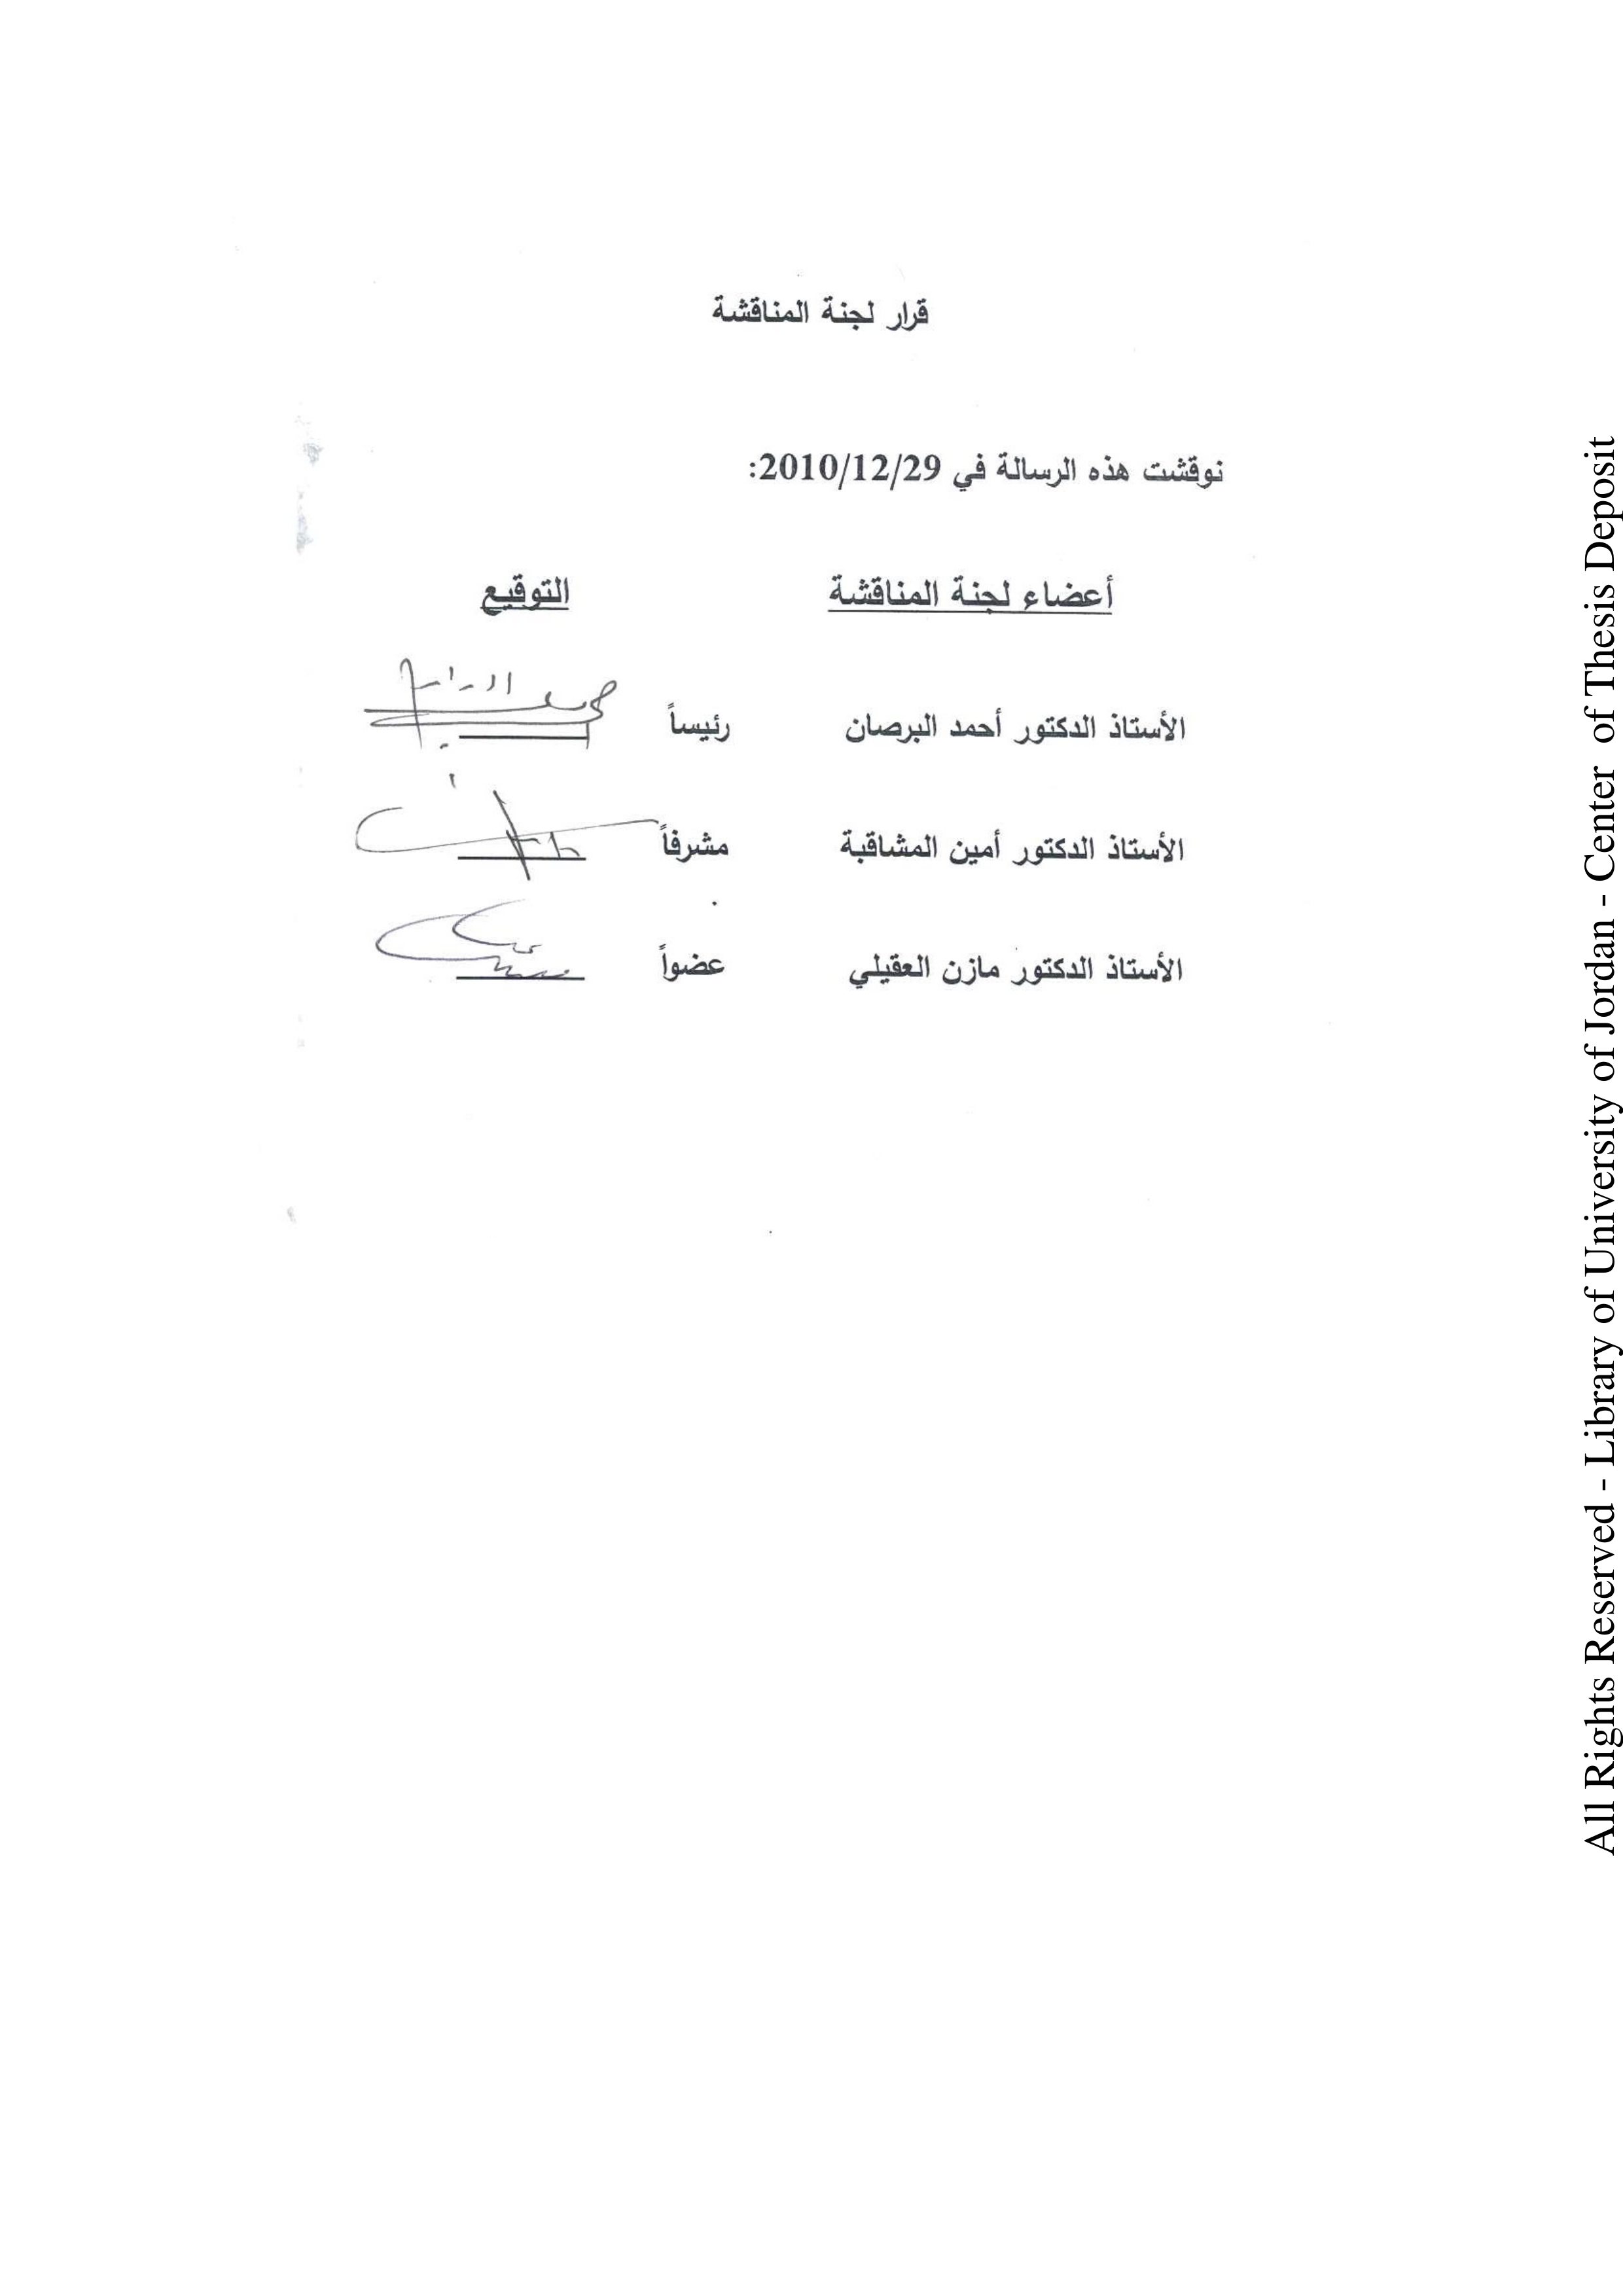 قرار لجنة المناقشة
نوقشت هذه الرسالة في 2010/12/29:
أعضاء لجنة المناقشة التوقيع
الأستاذ الدكتور أحمد البرصان رئيساً
الأستاذ الدكتور أمين المشاقبة مشرفاً
الأستاذ الدكتور مازن العقيلي عضواً
All Rights Reserved - Library of University of Jordan - Center of Thesis Deposit